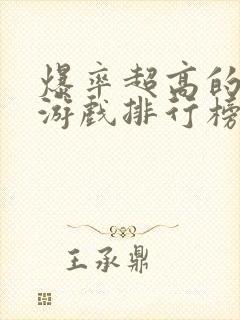 爆率超高的
游戏排行榜
王承鼎